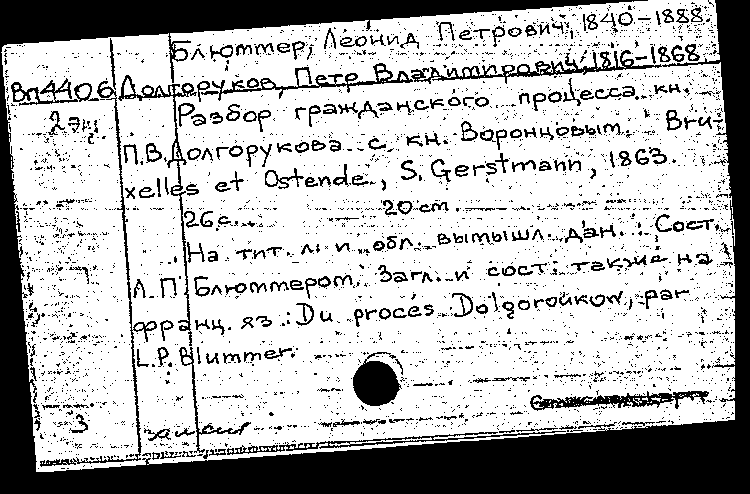 Блюммер, Леонид Петрович, 1840-1888.
Вп4406 Долгоруков, Петр Владимирович, 1816-1868.
2 экз. Разбор гражданского процесса кн.
П.В.Долгорукова с кн. Воронцовым. Bru-
xelles et Ostende, S. Gerstmann, 1863.
26 с. 20 cm
На тит. л. и обл. вымышл. дан. : Сост.
Л. П. Блюммером. Загл. и сост. также на
франц. яз.: Du procès Dolgoroukow, par
L.P. Blummer.
3